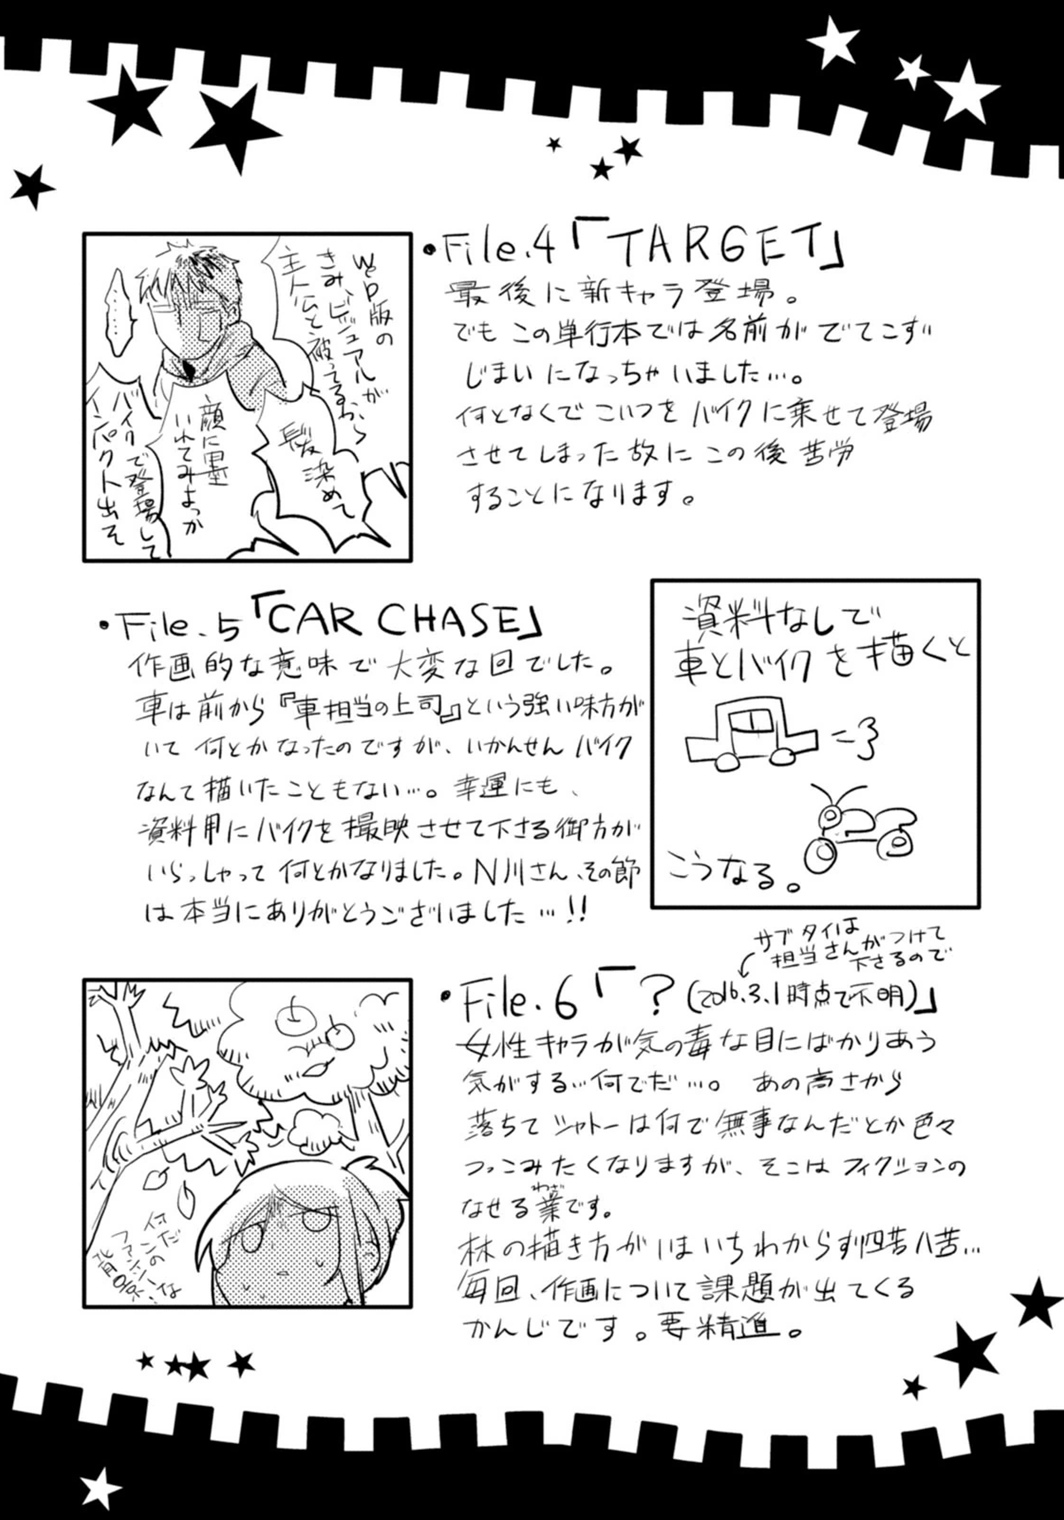 ・File.4「TARGET」
最後に新キャラ登場。
でもこの単行本では名前がでてこず
じまいになっちゃいました…。
何となくでこいつをバイクに乗せて登場
させてしまった故にこの後苦労
することになります。
W&D版の
きみ、ビジュアルが
主人公と被ってるから
髪染めて
顔に墨
いれてみよっか
バイクで登場して
インパクト出そ
……
・File.5「CAR CHASE」
作画的な意味で大変な回でした。
車は前から『車担当の上司』という強い味方が
いて何とかなったのですが、いかんせんバイク
なんて描いたこともない…。幸運にも、
資料用にバイクを撮映させて下さる御方が
いらっしゃって何とかなりました。N川さん、その節
は本当にありがとうございました…!!
資料なしで
車とバイクを描くと
こうなる。
サブタイは
担当さんがつけて
下さるので
・File.6「?(2016.3.1時点で不明)」
女性キャラが気の毒な目にばかりあう
気がする…何でだ…。あの高さから
落ちてシャトーは何で無事なんだとか色々
つっこみたくなりますが、そこはフィクションの
なせる業です。
わざ
林の描き方がいまいちわからず四苦八苦…
毎回、作画について課題が出てくる
かんじです。要精進。
何だ
この
ファンシーな
背景…